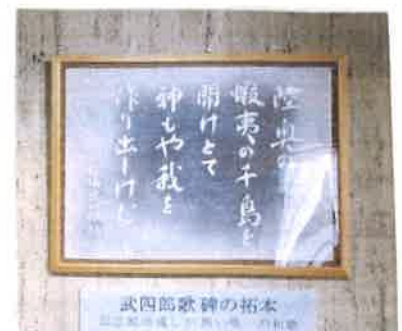 陸奥の
蝦夷の千島を
開けとて
神もや我を
作り出しけむ
武四郎歌碑の拓本